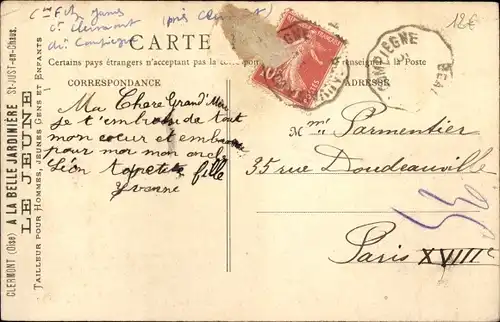 Cne Fitz James
Ct Clermont
(près Clermont)
12€
CARTE
Certains pays étrangers n'acceptent pas la
renseigner à la Poste
CORRESPONDANCE
ADRESSE
Ma Chare Grand'Mère
je t'embrasse de tout
mon coeur et embrasse
pour moi mon oncle
Léon ta petite fille
Yvonne
Mme Parmentier
35 rue Doudeauville
Paris XVIIIe
CLERMONT (Oise) A LA BELLE JARDINIÈRE St-JUST-en-Chaus.
LE JEUNE
TAILLEUR POUR HOMMES, JEUNES GENS ET ENFANTS
10
COMPIEGNE